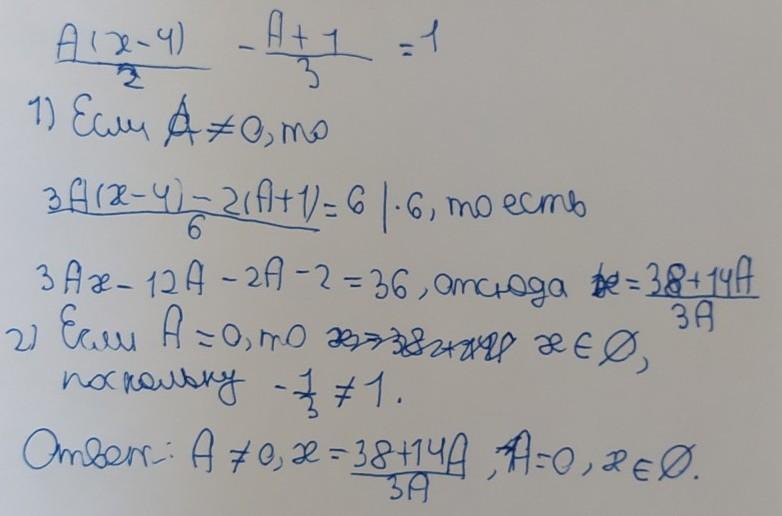 A(x-4)/2 - A+1/3 = 1
1) Если A ≠ 0, то
3A(x-4)-2(A+1)/6 = 6 | ·6, то есть
3Ax - 12A - 2A - 2 = 36, отсюда x = 38+14A/3A
2) Если A = 0, то x ∈ ∅,
поскольку -1/3 ≠ 1.
Ответ: A ≠ 0, x = 38+14A/3A, A = 0, x ∈ ∅.